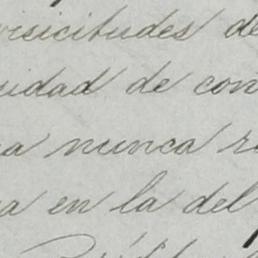 visicitudes de
uidad de con
a nunca r
a en la del